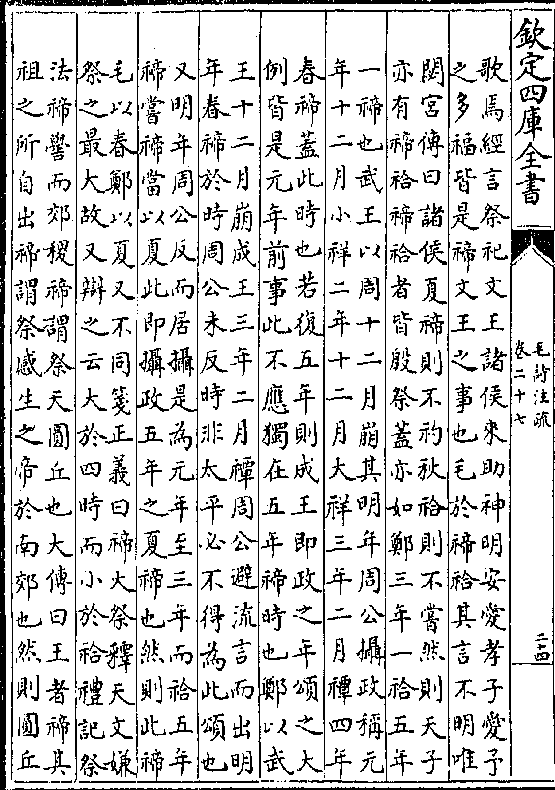 欽定四庫全書
毛詩注疏
卷二十七
二十四
歌焉經言祭祀文王諸侯來助神明安愛孝子愛予
之多福皆是禘文王之事也毛於禘祫其言不明唯
閟宮傳曰諸侯夏禘則不礿秋祫則不嘗然則天子
亦有禘祫禘祫者皆殷祭蓋亦如鄭三年一祫五年
一禘也武王以周十二月崩其明年周公攝政稱元
年十二月小祥二年十二月大祥三年二月禫四年
春禘蓋此時也若復五年則成王即政之年頌之大
例皆是元年前事此不應獨在五年禘時也鄭以武
王十二月崩成王三年二月禫周公避流言而出明
年春禘於時周公未反時非太平必不得為此頌也
又明年周公反而居攝是為元年至三年而祫五年
禘嘗禘當以夏此即攝政五年之夏禘也然則此禘
毛以春鄭以夏又不同箋正義曰禘大祭釋天文嫌
祭之最大故又辯之云大於四時而小於祫禮記祭
法禘嚳而郊稷禘謂祭天圜丘也大傳曰王者禘其
祖之所自出禘謂祭感生之帝於南郊也然則圜丘